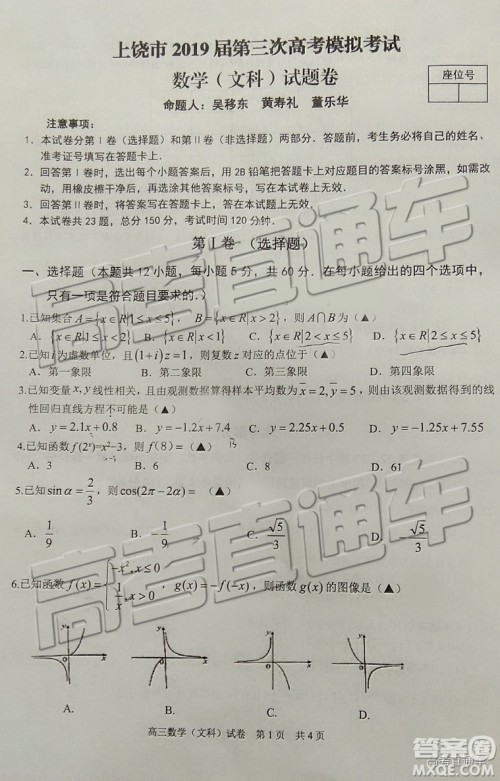 上饶市 2019 届第三次高考模拟考试
数学（文科）试题卷
座位号
命题人：吴移东 黄寿礼 董乐华
注意事项：
1、本试卷分第Ⅰ卷（选择题）和第Ⅱ卷（非选择题）两部分．答题前，考生务必将自己的姓名、
准考证号填写在答题卡上．
2、回答第Ⅰ卷时，选出每个小题答案后，用 2B 铅笔把答题卡上对应题目的答案标号涂黑，如需改
动，用橡皮擦干净后，再选涂其它答案标号，写在本试卷上无效．
3、回答第Ⅱ卷时，将答案写在答题卡上，答在本试题卷上无效．
4、本试卷共 23 题，总分 150 分，考试时间 120 分钟．
第Ⅰ卷 （选择题）
一、选择题（本题共 12 小题，每小题 5 分，共 60 分．在每小题给出的四个选项中，
只有一项是符合题目要求的．）
1.已知集合 A={x∈R|1≤x≤5}，B={x∈R|x>2}，则 A∩B 为（▲）
A. {x∈R|1≤x<2} B. {x∈R|x≥1} C. {x∈R|2<x≤5} D. {x∈R|2≤x≤5}
2.已知i为虚数单位，且(1+i)z=1，则复数 z 对应的点位于（▲）
A．第一象限 B．第二象限 C．第三象限 D．第四象限
3.已知变量 x,y 线性相关，且由观测数据算得样本平均数为 x̄=2,ȳ=5，则由该观测数据得到的线
性回归直线方程不可能是（▲）
A．y=2.1x+0.8 B．y=-1.2x+7.4 C．y=2.25x+0.5 D．y=-1.25x+7.55
4.已知函数 f(2ˣ)=x²-3，则 f(8)=（▲）
A．3 B．6 C．8 D．61
5.已知 sin α = 2/3，则 cos(2π-2α)= （▲）
A．1/9 B．-1/9 C．√5/3 D．-√5/3
6.已知函数 f(x)={-x²,x≤0 1/x,x>0，g(x)=-f(-x)，则函数 g(x) 的图像是（▲）
y x O y x O y x O y x O
A. B. C. D.
高三数学（文科）试卷 第 1 页 共 4 页
高考直通车
高考直通车
高考直通车
答案圈
MXQE.COM